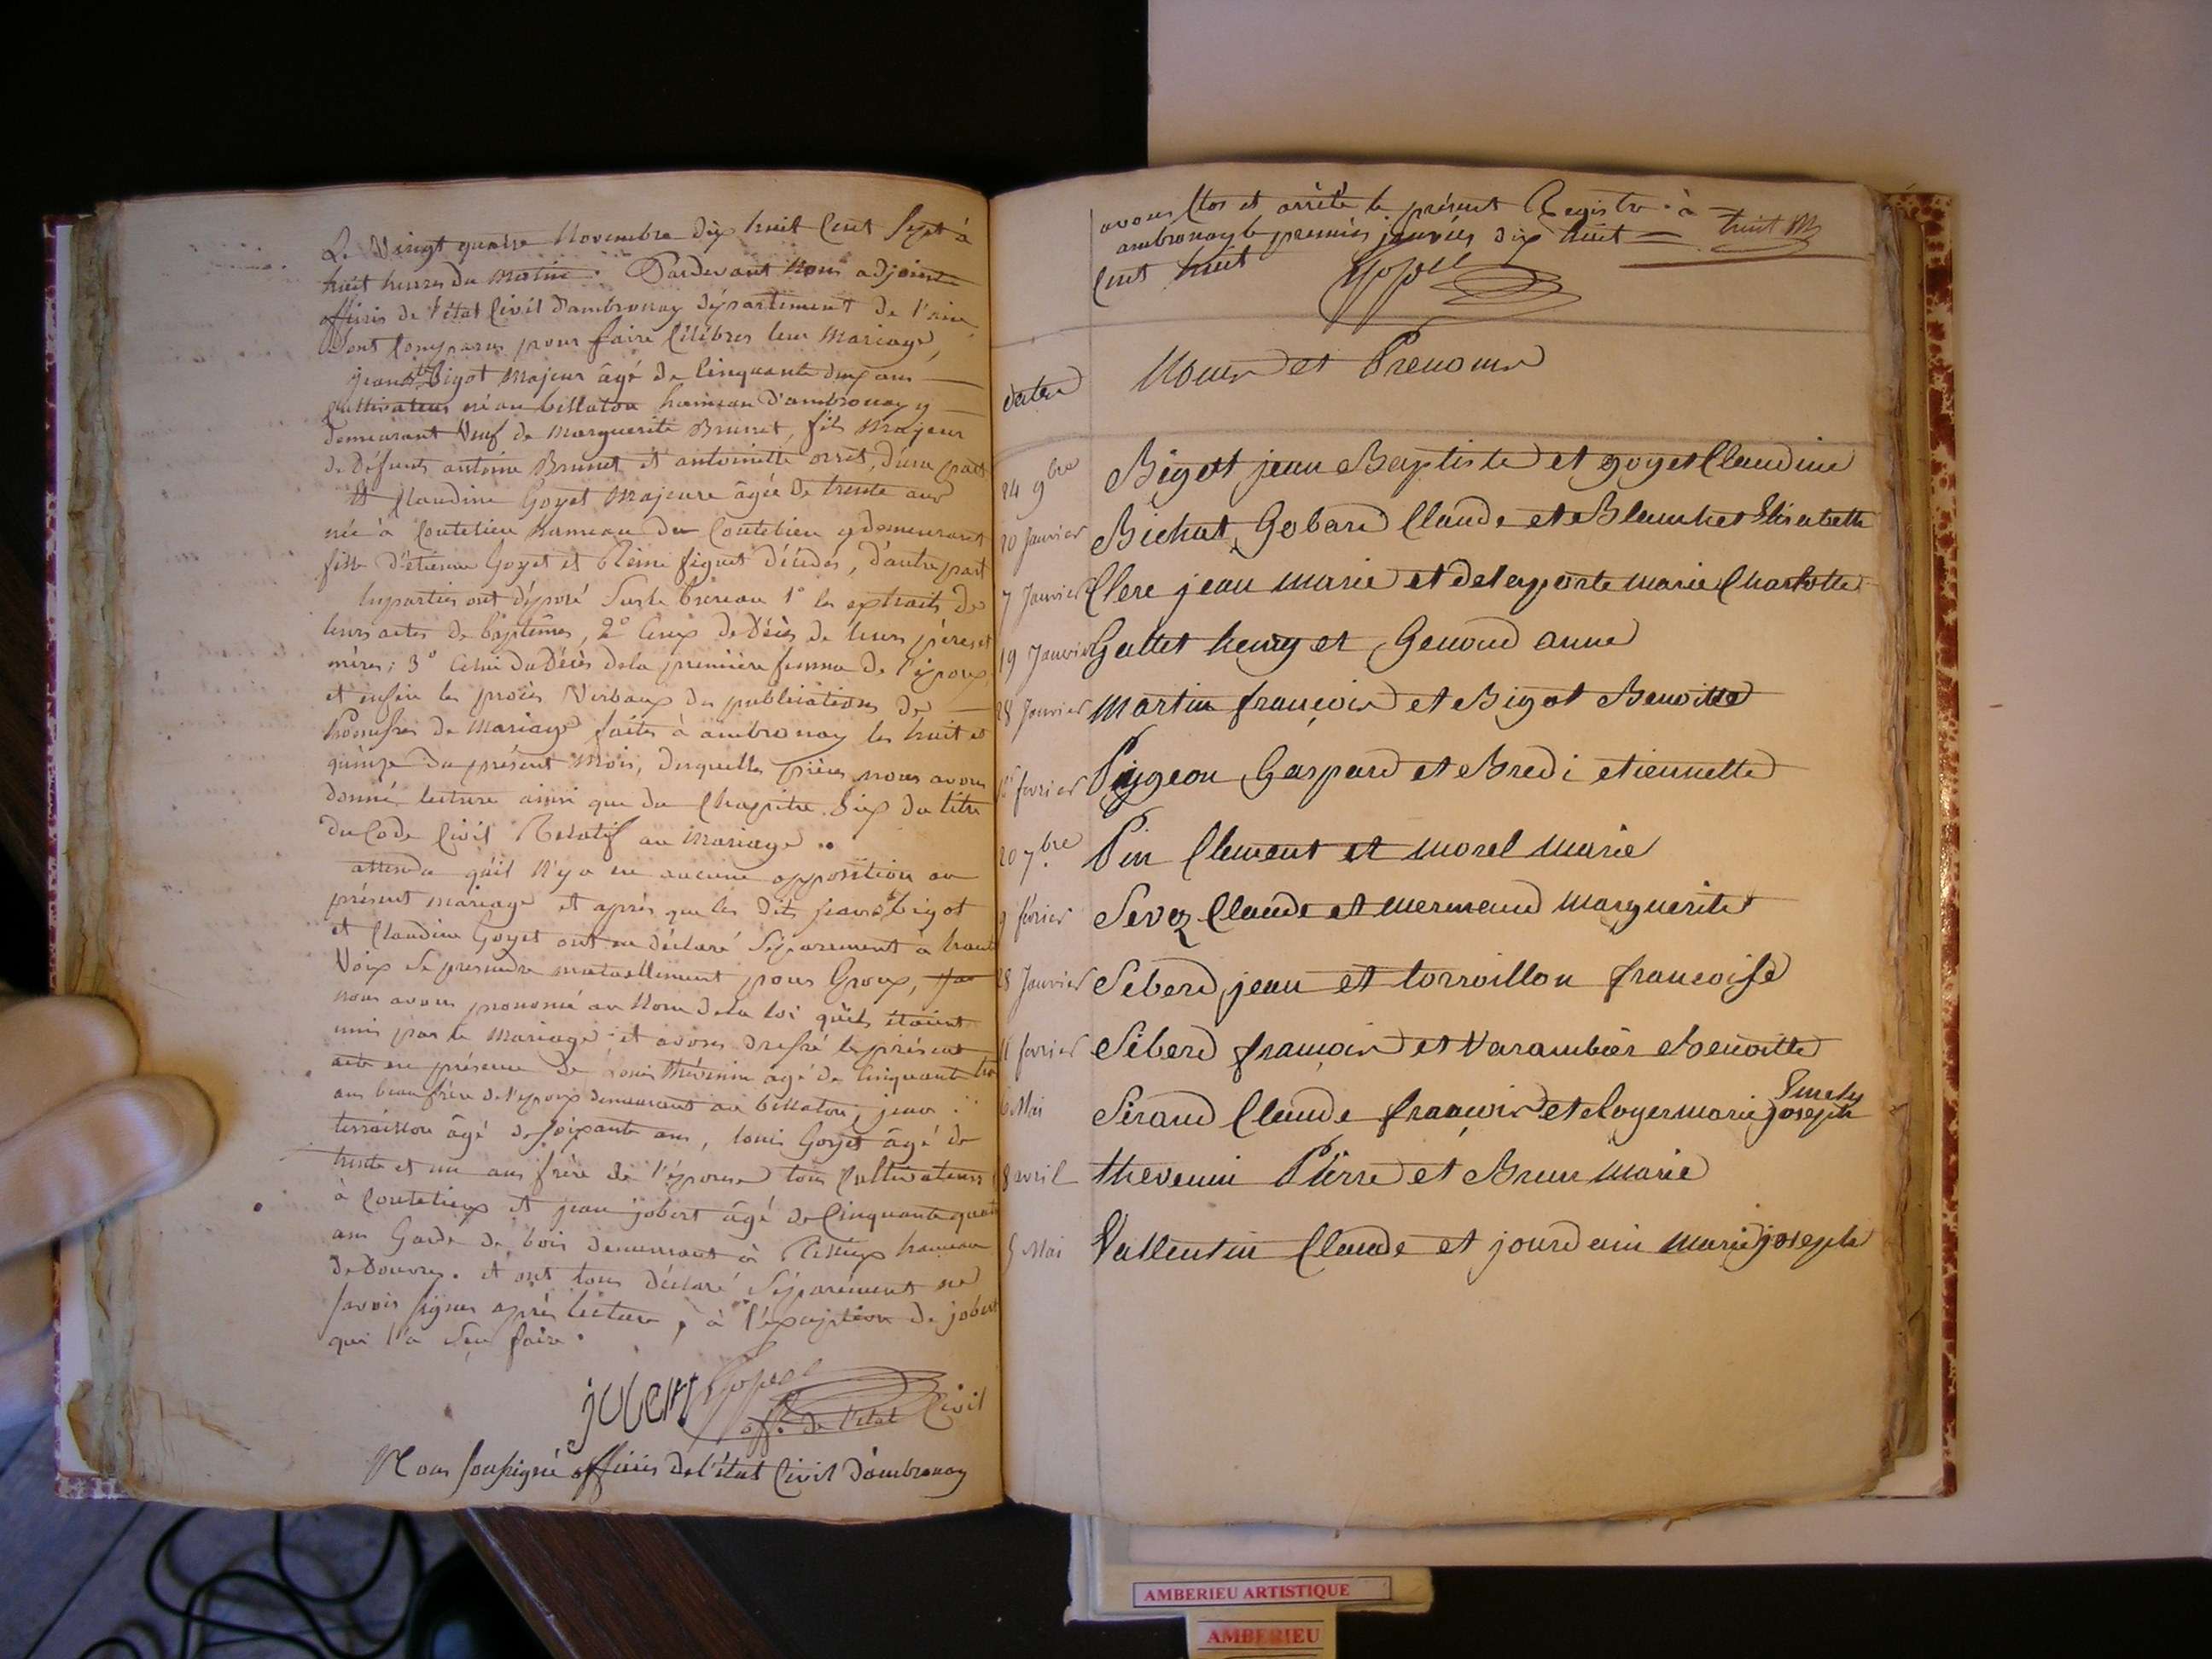 Le Vingt quatre Novembre dix huit Cent Sept à
huit heures du matin. Pardevant Nous adjoint
officier de l'état Civil d'ambronay département de l'ain
sont Comparus pour faire Célébrer leur Mariage,
jean Bte Bigot Majeur âgé de Cinquante deux ans
Cultivateur né au billaton hameau d'ambronay y
demeurant Veuf de Marguerite Brunet, fils Majeur
de défunts antoine Brunet et antoinette orset, d'une part
Et Claudine Goyet Majeure âgée de trente ans
née à Coutelieu hameau de Coutelieu y demeurant
fille d'étienne Goyet et Reine figuet décédés, d'autre part
les parties ont déposé Sur le bureau 1° les extraits de
leurs actes de baptêmes, 2° Ceux de Décès de leurs pères et
mères; 3° Celui du Décès de la première femme de l'époux
et enfin les procès Verbaux des publications de
promesses de Mariage faites à ambronay les huit et
quinze du présent Mois, desquelles pièces nous avons
donné lecture ainsi que du Chapitre Six du titre
du Code Civil Relatif au Mariage..
attendu qu'il N'y a eu aucune opposition au
présent mariage et après que les dits jean Bte bigot
et Claudine Goyet ont eu déclaré Séparement à haute
Voix Se prendre mutuellement pour Epoux,
nous avons prononcé au Nom de la loi qu'ils étaient
unis par le Mariage et avons dressé le présent
acte en présence de Louis thévenin agé de Cinquante
ans beau frère de l'époux demeurant au billaton, jean
terraillon âgé de soixante ans, louis Goyet âgé de
trente et un ans frère de l'épouse tous Cultivateurs
à Coutelieux et jean jobert âgé de Cinquante quatre
ans Garde de bois demeurant à hameau
de Douvres. et ont tous déclaré Séparément ne
savoir signer après lecture, à l'exception de jobert
qui l'a Seu faire.
jobert
off. de l'état Civil
Nous soussigné officier de l'état Civil d'ambronay
avons Clos et arrêté le présent Registre à
ambronay le premier janvier dix huit
Cent huit
dates Noms et Prenoms
24 9bre Bigot jean Baptiste et goyet Claudine
20 Janvier Bichat Gobard Claude et Blanchet Elisabeth
7 Janvier Clere jean marie et delaporte marie Charlotte
19 Janvier Gallet henry et Genoud anne
28 Janvier Martin françois et Bigot Benoitte
fevrier Pigeon Gaspard et Bredi etiennette
20 7bre Pin Clement et morel marie
9 fevrier Sevoz Claude et mermand marguerite
28 Janvier Seberd jean et torroillon francoise
11 fevrier Seberd françois et Varambier Benoitte
6 Mai Siraud Claude françois et Loyer marie joseph
8 avril thevenin Pierre et Brun Marie
5 Mai Vallentin Claude et jourdain marie joseph
AMBERIEU ARTISTIQUE
AMBERIEU